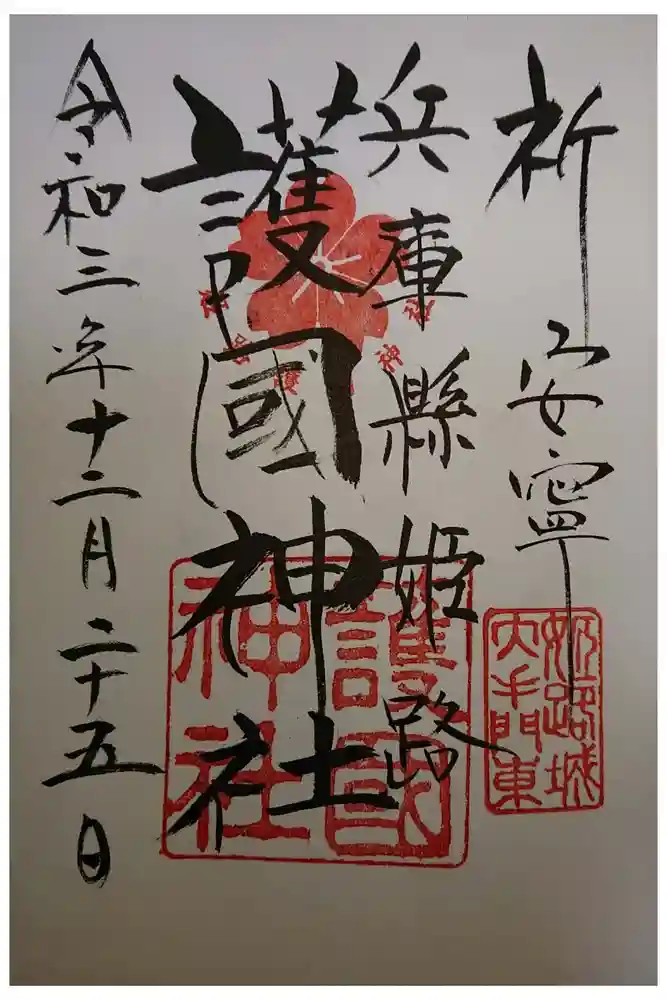 祈 安寧
兵庫縣姫路
護國神社
令和三年十二月二十五日
姫路城
大手門東
護國
神社